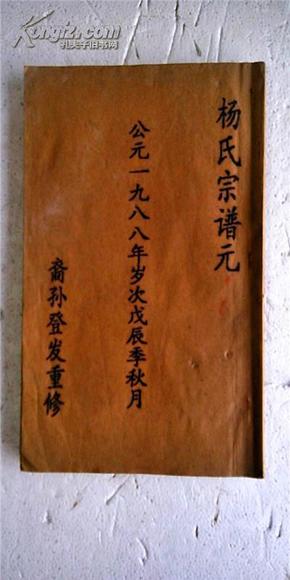 杨氏宗谱元
公元一九八八年岁次戊辰季秋月
裔孙登发重修
Kongfz.com
孔夫子旧书网